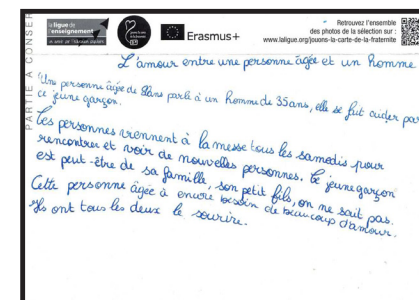 la ligue de
l'enseignement
Erasmus+
Retrouvez l'ensemble
des photos de la sélection sur :
www.laligue.org/jouons-la-carte-de-la-fraternite
PARTIE A CONSER
L'amour entre une personne âgée et un homme
Une personne âgée de ans parle à un homme de 35ans, elle se fait aider par
ce jeune garçon.
Ces personnes viennent à la messe tous les samedis pour
rencontrer et voir de nouvelles personnes. Ce jeune garçon
est peut-être de sa famille, son petit fils, on ne sait pas.
Cette personne âgée à encore besoin de beaucoup d'amour.
Ils ont tous les deux le sourire.